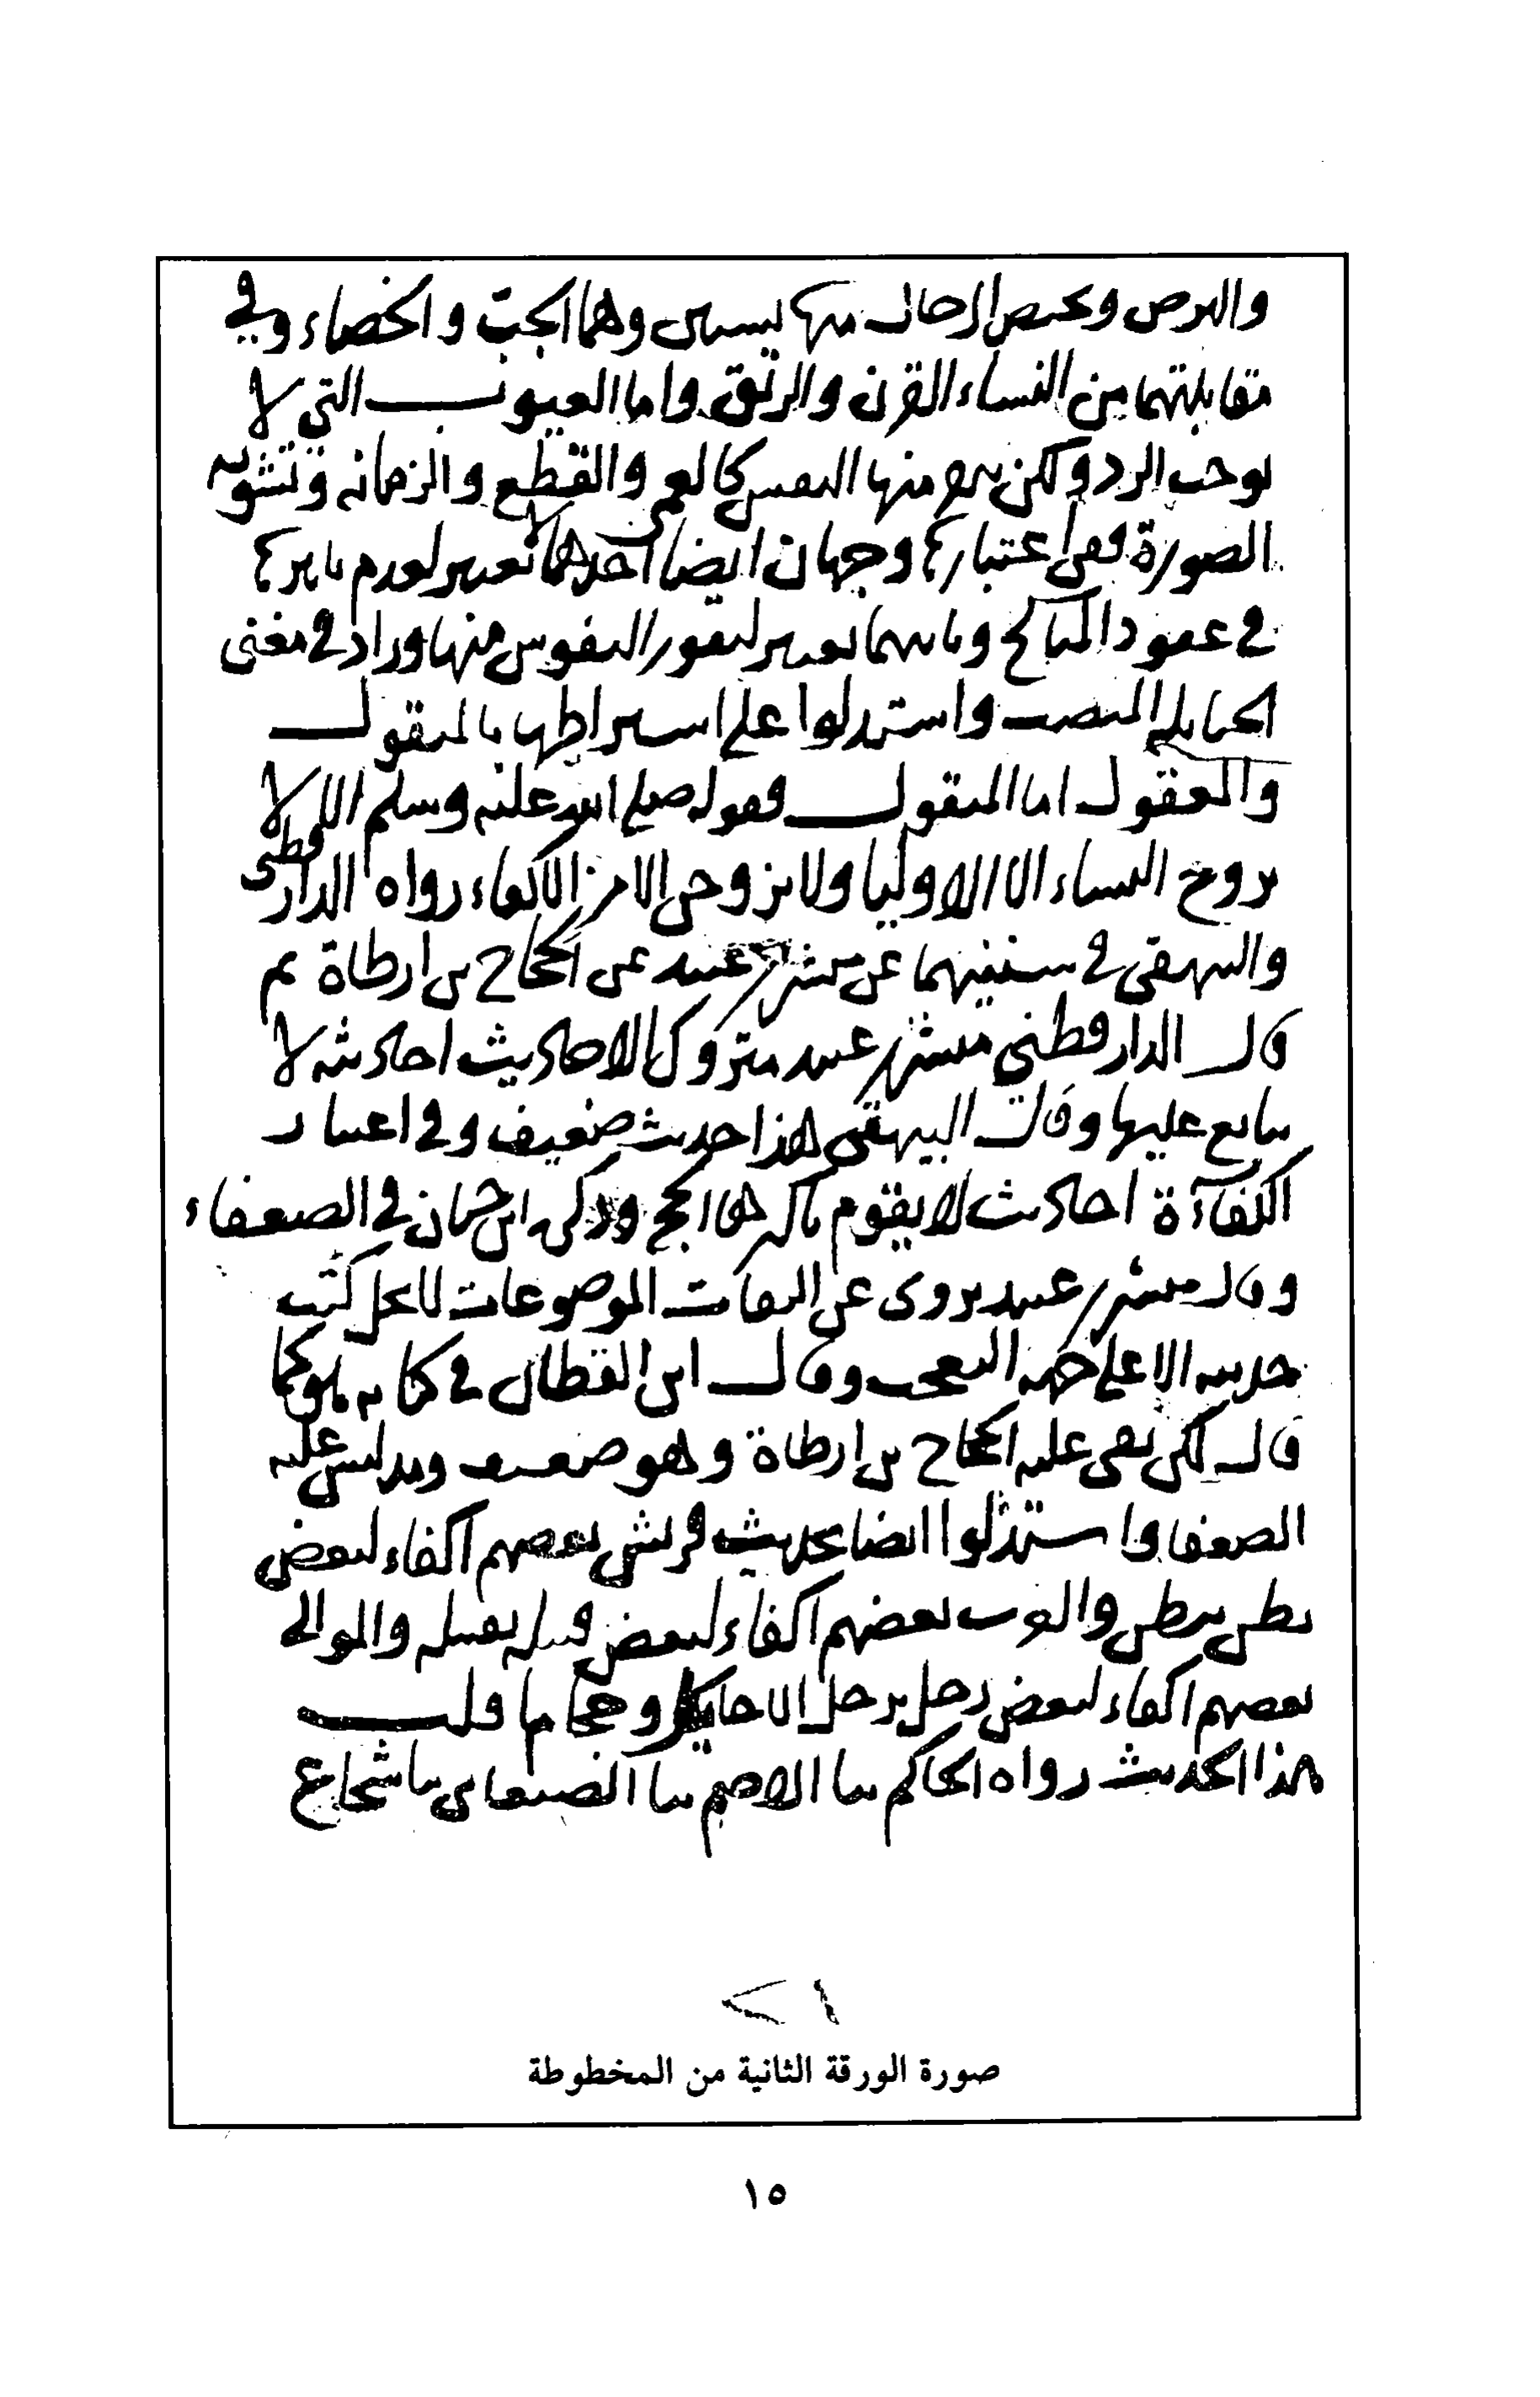 والبرص ويختص الرجال منها بسببين وهما الجب والخصاء وفي
مقابلتهما من النساء القرن والرتق واما العيوب التي لا
يوجب الرد ولكن ينفر منها النفس كالعمى والقطع والزمانة وتشويه
الصورة ففي اعتبارها وجهان ايضا احدهما لا تعتبر لعدم تاثيرها
في عقود المناكح وثانيهما تعتبر لنفور النفوس منها وزاد في مغني
الحنابلة المنصب واستدلوا على اشتراطها بالمنقول
والمعقول اما المنقول فقوله صلى الله عليه وسلم الا لا
يزوج النساء الا الاوليا ولا يزوجن الا من الاكفاء رواه الدارقطني
والبيهقي في سننيهما عن مبشر بن عبيد عن الحجاج بن ارطاة ثم
قال الدارقطني مبشر بن عبيد متروك الاحاديث احاديثه لا
يتابع عليها وقال البيهقي هذا حديث ضعيف وفي اعتبار
الكفاءة احاديث لا يقوم باكثرها الحجج وذكره ابن حبان في الضعفاء
وقال مبشر بن عبيد يروى عن الثقات الموضوعات لا يحل كتب
حديثه الا على جهة التعجب وقال ابن القطان في كتابه وهو كما
قال لكن بقي عليه الحجاج بن ارطاة وهو ضعيف ومدلس على
الضعفا واستدلوا ايضا بحديث قريش بعضهم اكفاء لبعض
بطن ببطن والعرب بعضهم اكفاء لبعض قبيلة بقبيلة والموالى
بعضهم اكفاء لبعض رجل برجل الا حايك او حجاما قلت
هذا الحديث رواه الحاكم ثنا الاصم ثنا الصنعاني ثنا شجاع
٢١
صورة الورقة الثانية من المخطوطة
١٥